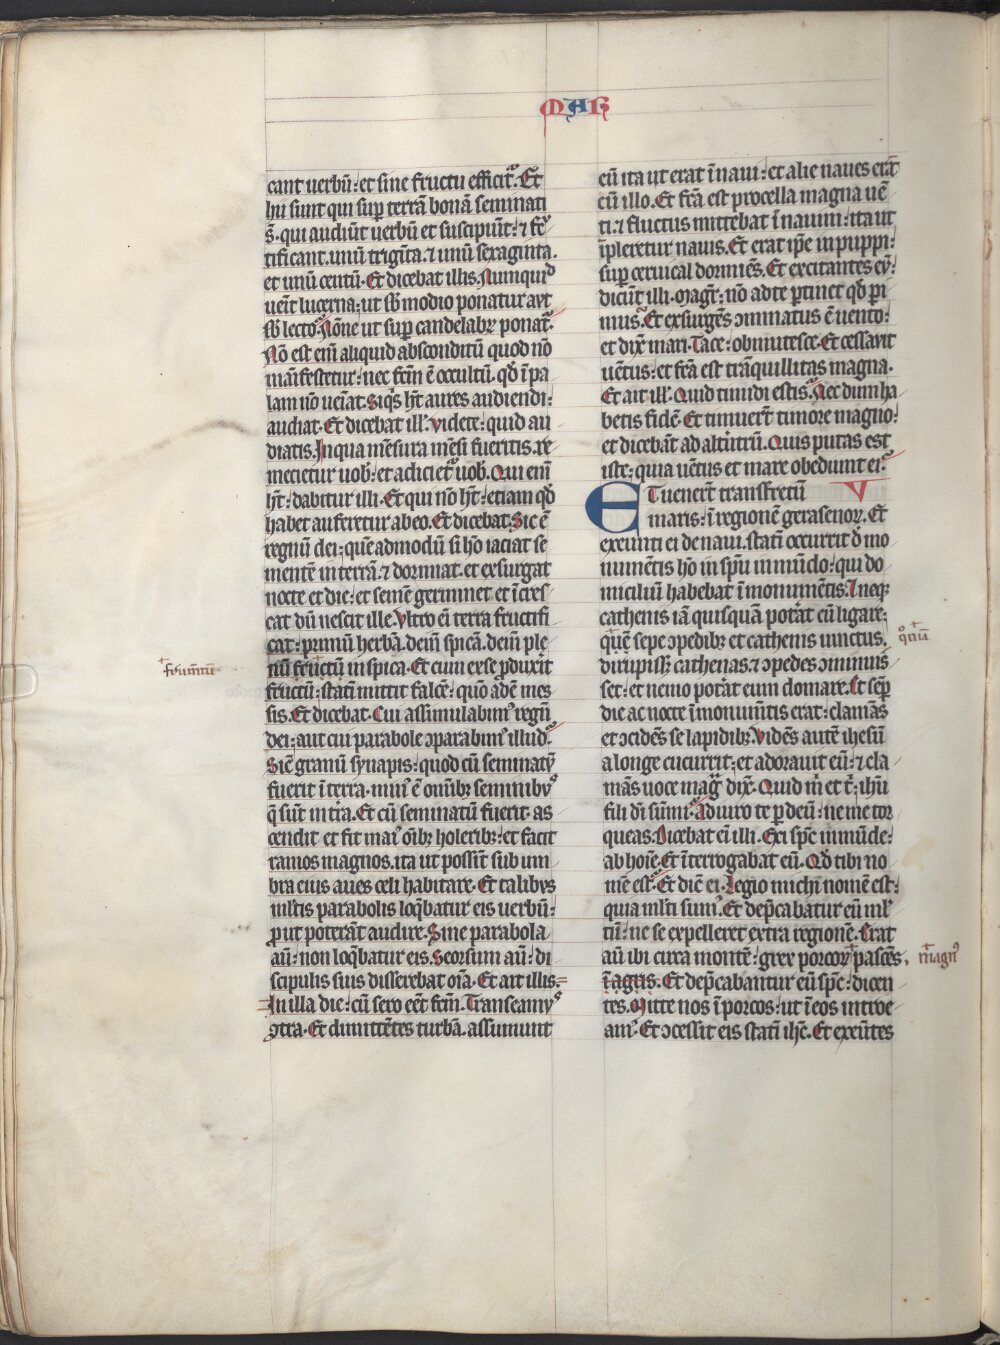 MAR
cant uerbū: et sine fructu efficit᷑. Et
hii sunt qui sup terrā bonā seminati
s̄. qui audiūt uerbū et suscipiūt: ⁊ fruc
tificant. unū trigīta. ⁊ unū sexaginta.
et unū centū. Et dicebat illis. Numquid
uēīt lucerna: ut sb̄ modio ponatur aut
sb̄ lecto. Nōne ut sup candelabꝝ ponat᷑.
Nō est enī aliquid absconditū quod nō
manifestetur: nec fcm̄ ē occultū. qd̄ ī pa
lam nō ueīat. Siqͥs ht̄ aures audiendi:
audiat. Et dicebat ill᷒. Videte: quid au
diatis. In qua mēsura mēsi fueritis. re
mecietur uob᷒: et adiciet᷑ uob᷒. Qui enī
ht̄: dabitur illi. Et qui nō ht̄: etiam qd̄
habet auferetur ab eo. Et dicebat. Sic ē
regnū dei: quēadmodū si hō iaciat se
mentē in terrā. ⁊ dormiat. et exsurgat
nocte et die: et semē germinet et īcres
cat dū nescit ille. Vltro eī terra fructifi
cat: primū herbā. deīn spicā. deīn ple
nū fructū in spica. Et cum ex se ꝓduxit
fructū: statī mittit falcē: quō adē mes
sis. Et dicebat. Cui assimulabimꝰ regnū
dei: aut cui parabole ꝯparabimꝰ illud.
Sicī granū synapis: quod cū seminatū
fuerit ī terra. minꝰ ē omībꝫ seminibus
q̄ sūt in tr̄a. Et cū seminatū fuerit. as
cendit et fit maiꝰ oībꝫ holeribꝫ: et facit
ramos magnos. ita ut possīt sub um
bra eius aues celi habitare. Et talibus
mltis parabolis loqͥbatur eis uerbū:
ꝓut poterāt audire. Sine parabola
aū: non loqͥbatur eis. Seorsum aū: di
scipulis suis disserebat oīa. Et ait illis.
In illa die: cū sero eēt fcm̄. Transeamꝰ
ꝯtra. Et dimittētes turbā. assumunt
frumētū
eū ita ut erat ī naui: et alie naues erāt
cū illo. Et fcā est procella magna uē
ti: ⁊ fluctus mittebat ī nauim: ita ut
īpleretur nauis. Et erat ip̄e in puppi:
sup ceruical dormiēs. Et excitantes eū:
dicūt illi. Magr̄: nō ad te ptinet qd̄ pi
mus. Et exsurgēs ꝯminatus ē uento:
et dixͭ mari. Tace: obmutesce. Et cessauit
uētus: et fcā est trāquillitas magna.
Et ait ill᷒. Quid timidi estis. Nec dum ha
betis fidē. Et timuerīt timore magno:
et dicebāt ad altītrū. Quis putas est
iste: quia uētus et mare obediunt ei.
Et uenerīt trans fretū V
maris: ī regionē gerasenoꝝ. Et
exeunti ei de naui. statī occurrit d̄ mo
numētis hō in spū inmūdo: qui do
miciliū habebat ī monumētis. Et neqꝫ
cathenis iā quisquā potāt eū ligare:
quē sepe ꝯpedibꝫ et cathenis uinctus.
dirupissꝫ cathenas. ⁊ ꝯpedes ꝯminuis
set: et nemo potāt eum domare. Et semp
die ac nocte ī monumītis erat: clamās
et ꝯcidēs se lapidibꝫ. Vidēs autē ihesū
a longe cucurrit: et adorauit eū: ⁊ cla
mās uoce magͣ dixͭ. Quid m̄ et t̄: ihū
fili dī sūmi. Adiuro te p deū: ne me tor
queas. Dicebat eī illi. Exi spc̄ inmūde:
ab hoīe. Et īterrogabat eū. Qd̄ tibi no
mē est. Et dic̄ ei. Legio michi nomē est:
quia mlti sumꝰ. Et dep̄cabatur eū ml̄
tū: ne se expelleret extra regionē. Erat
aū ibi circa montē: grex porcoꝝ pascēs
ī agris. Et dep̄cabantur eū spc̄: dicen
tes. Mitte nos ī porcos: ut ī eos introe
amꝰ. Et ꝯcessit eis statī ihc̄. Et exeūtes
qͦniā
magnꝰ